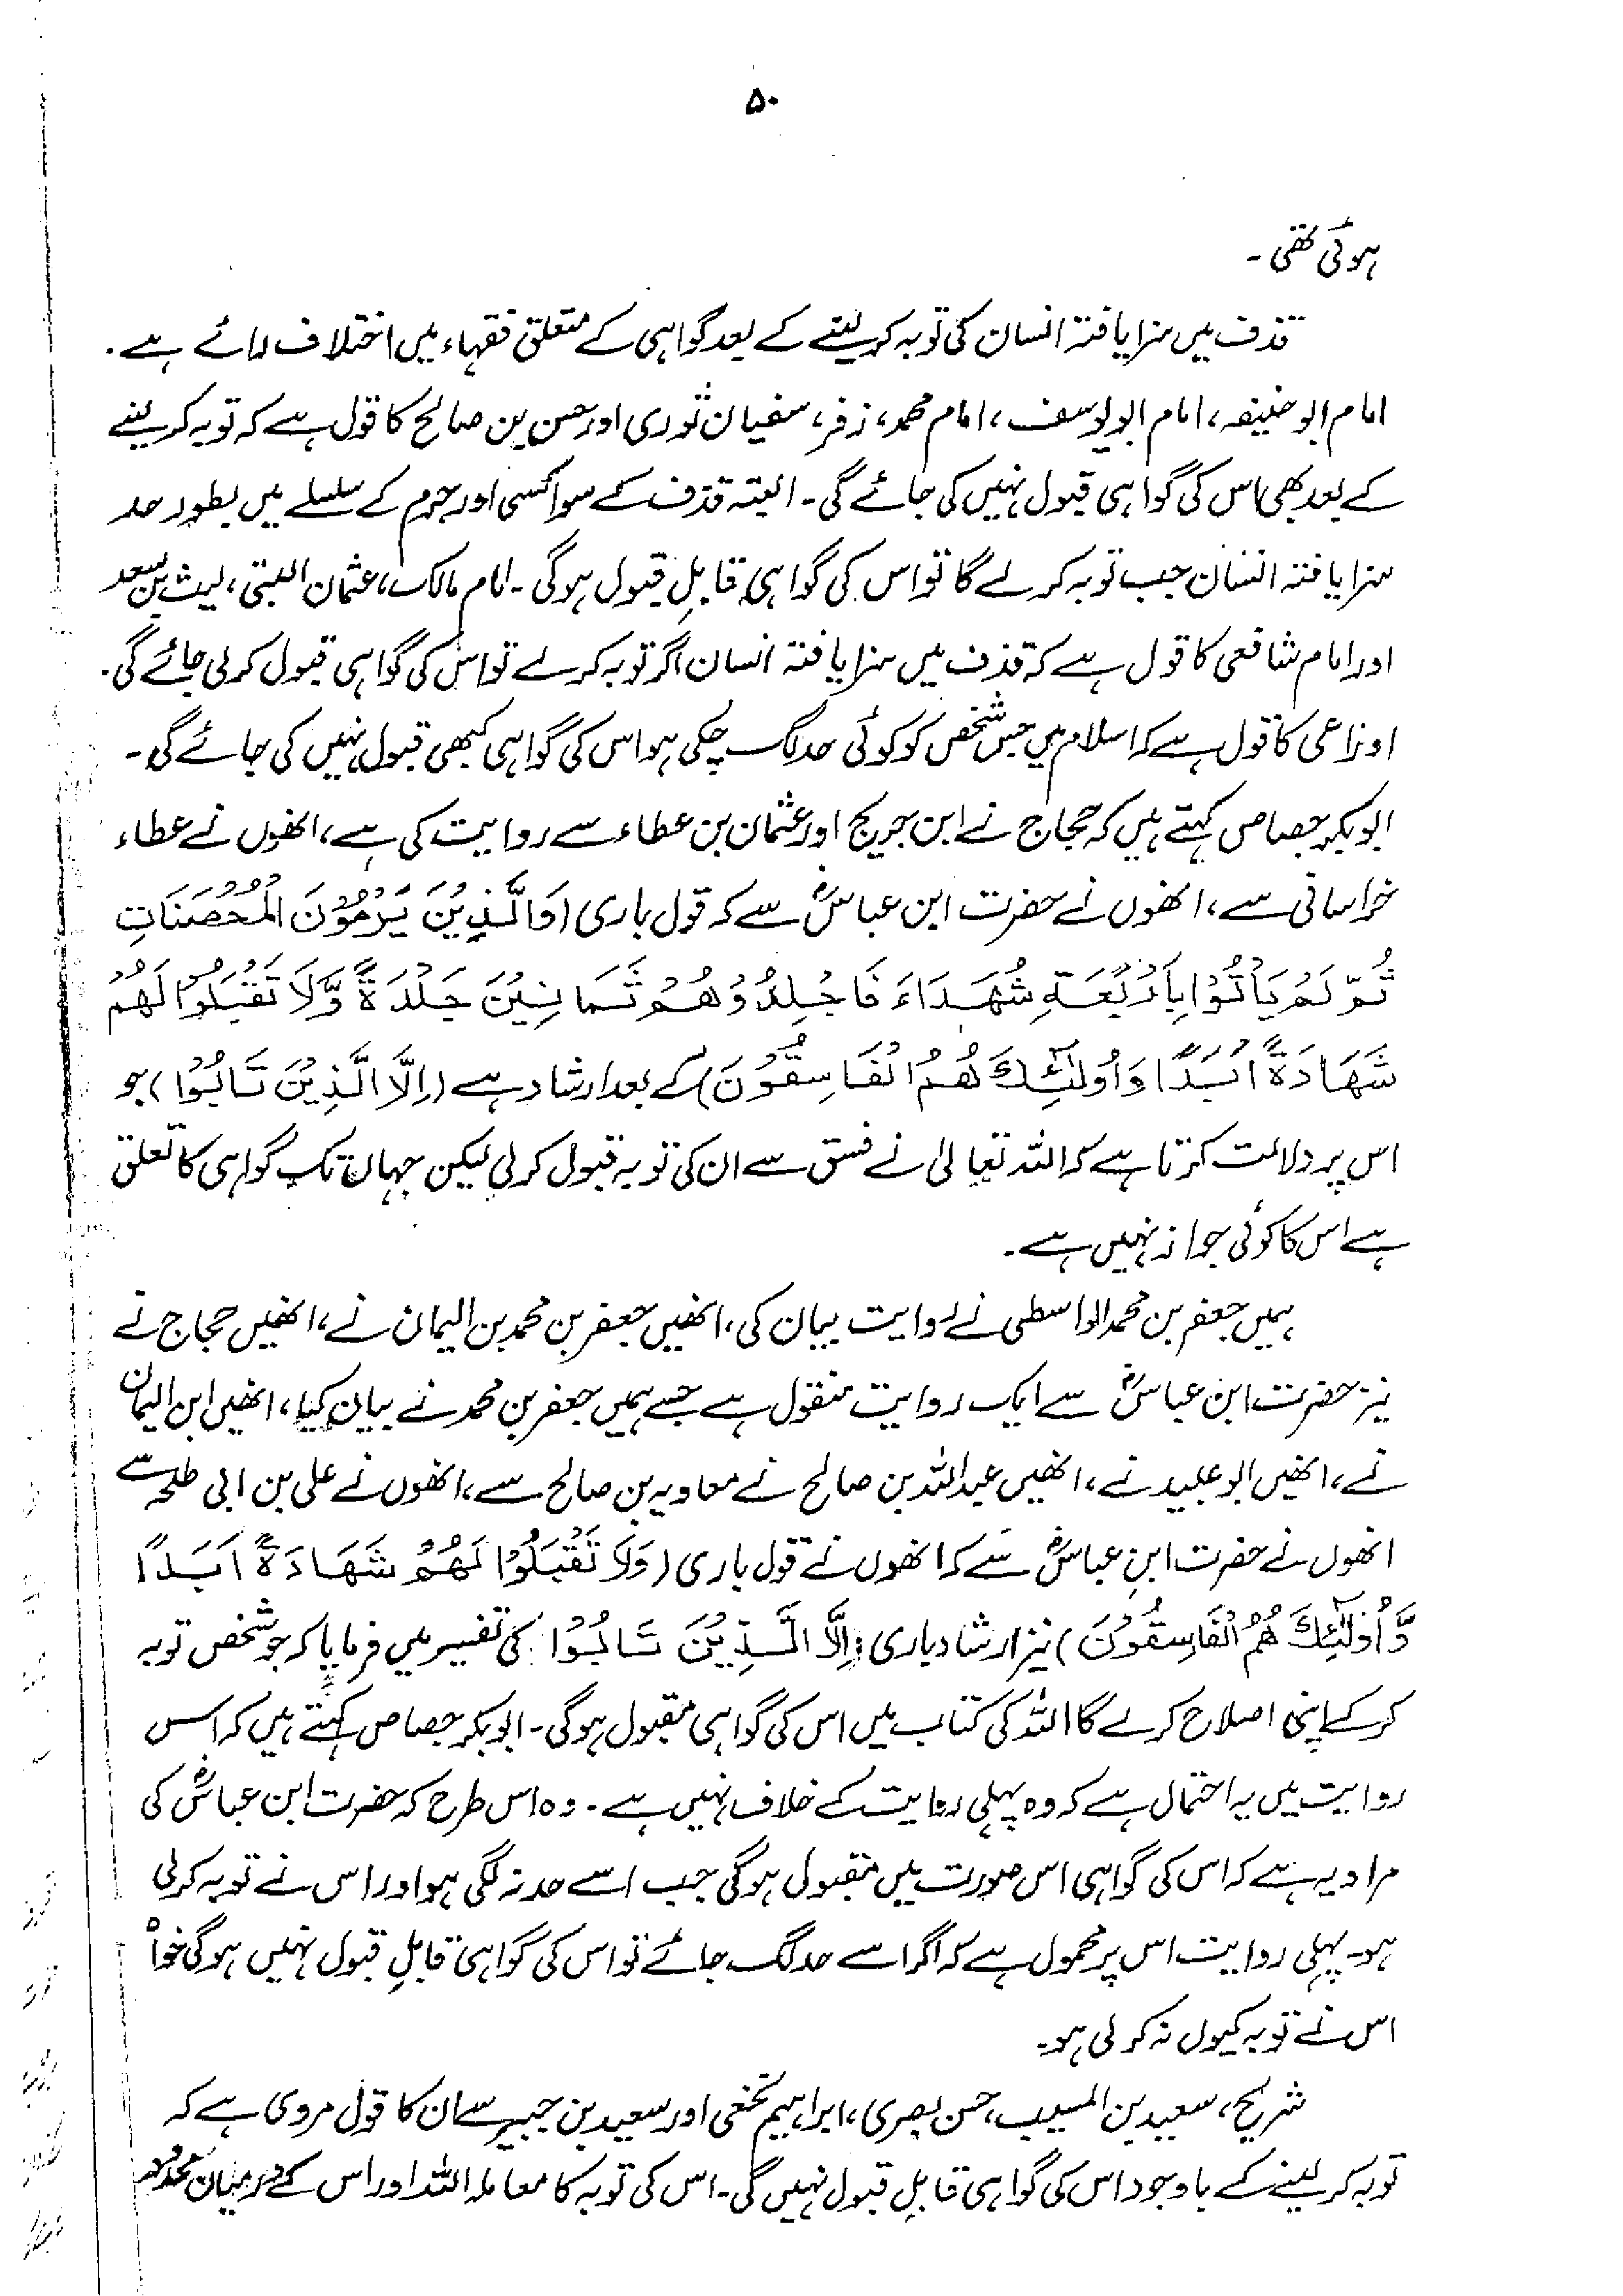 ۵۰
ہوئی تھی ۔
قذف میں سزا یافتہ انسان کی توبہ کر لینے کے بعد گواہی کے متعلق فقہاء میں اختلاف رائے ہے .
امام ابو حنیفہ، امام ابو یوسف، امام محمد، زفر، سفیان ثوری اور حسن بن صالح کا قول ہے کہ توبہ کر لینے
کے بعد بھی اس کی گواہی قبول نہیں کی جائے گی ۔ البتہ قذف کے سوا کسی اور جرم کے سلسلے میں بطور حد
سزا یافتہ انسان جب توبہ کر لے گا تو اس کی گواہی قابلِ قبول ہوگی ۔ امام مالک، عثمان البتی، لیث بن سعد
اور امام شافعی کا قول ہے کہ قذف میں سزا یافتہ انسان اگر توبہ کر لے تو اس کی گواہی قبول کر لی جائے گی .
اوزاعی کا قول ہے کہ اسلام میں جس شخص کو کوئی حد لگ چکی ہو اس کی گواہی کبھی قبول نہیں کی جائے گی ۔
ابو بکر جصاص کہتے ہیں کہ حجاج نے ابن جریج اور عثمان بن عطاء سے روایت کی ہے، انھوں نے عطاء
خراسانی سے، انھوں نے حضرت ابن عباسؓ سے کہ قول باری (وَالَّذِيْنَ يَرْمُوْنَ الْمُحْصَنَاتِ
ثُمَّ لَمْ يَأْتُوْا بِأَرْبَعَةِ شُهَدَاءَ فَاجْلِدُوْهُمْ ثَمَانِيْنَ جَلْدَةً وَّلَا تَقْبَلُوْا لَهُمْ
شَهَادَةً اَبَدًا وَاُولٰئِكَ هُمُ الْفَاسِقُوْنَ) کے بعد ارشاد ہے (اِلَّا الَّذِيْنَ تَابُوْا) جو
اس پر دلالت کرتا ہے کہ اللہ تعالیٰ نے فسق سے ان کی توبہ قبول کر لی لیکن جہاں تک گواہی کا تعلق
ہے اس کا کوئی جواز نہیں ہے ۔
ہمیں جعفر بن محمد الواسطی نے روایت بیان کی، انھیں جعفر بن محمد بن الیمان نے، انھیں حجاج نے
نیز حضرت ابن عباسؓ سے ایک روایت منقول ہے جسے ہمیں جعفر بن محمد نے بیان کیا، انھیں ابن الیمان
نے، انھیں ابو عبید نے، انھیں عبداللہ بن صالح نے معاویہ بن صالح سے، انھوں نے علی بن ابی طلحہ سے
انھوں نے حضرت ابنِ عباسؓ سے کہ انھوں نے قول باری (وَلَا تَقْبَلُوْا لَهُمْ شَهَادَةً اَبَدًا
وَّاُولٰئِكَ هُمُ الْفَاسِقُوْنَ) نیز ارشاد باری : اِلَّا الَّذِيْنَ تَابُوْا کی تفسیر میں فرمایا کہ جو شخص توبہ
کر کے اپنی اصلاح کر لے گا اللہ کی کتاب میں اس کی گواہی مقبول ہوگی ۔ ابو بکر جصاص کہتے ہیں کہ اس
روایت میں یہ احتمال ہے کہ وہ پہلی روایت کے خلاف نہیں ہے ۔ وہ اس طرح کہ حضرت ابن عباسؓ کی
مراد یہ ہے کہ اس کی گواہی اس صورت میں مقبول ہوگی جب اسے حد نہ لگی ہو اور اس نے توبہ کر لی
ہو ۔ پہلی روایت اس پر محمول ہے کہ اگر اسے حد لگ جائے تو اس کی گواہی قابلِ قبول نہیں ہوگی خواہ
اس نے توبہ کیوں نہ کر لی ہو ۔
شریح، سعید بن المسیب، حسن بصری، ابراہیم نخعی اور سعید بن جبیر سے ان کا قول مروی ہے کہ
توبہ کر لینے کے باوجود اس کی گواہی قابلِ قبول نہیں گی ۔ اس کی توبہ کا معاملہ اللہ اور اس کے درمیان محدود